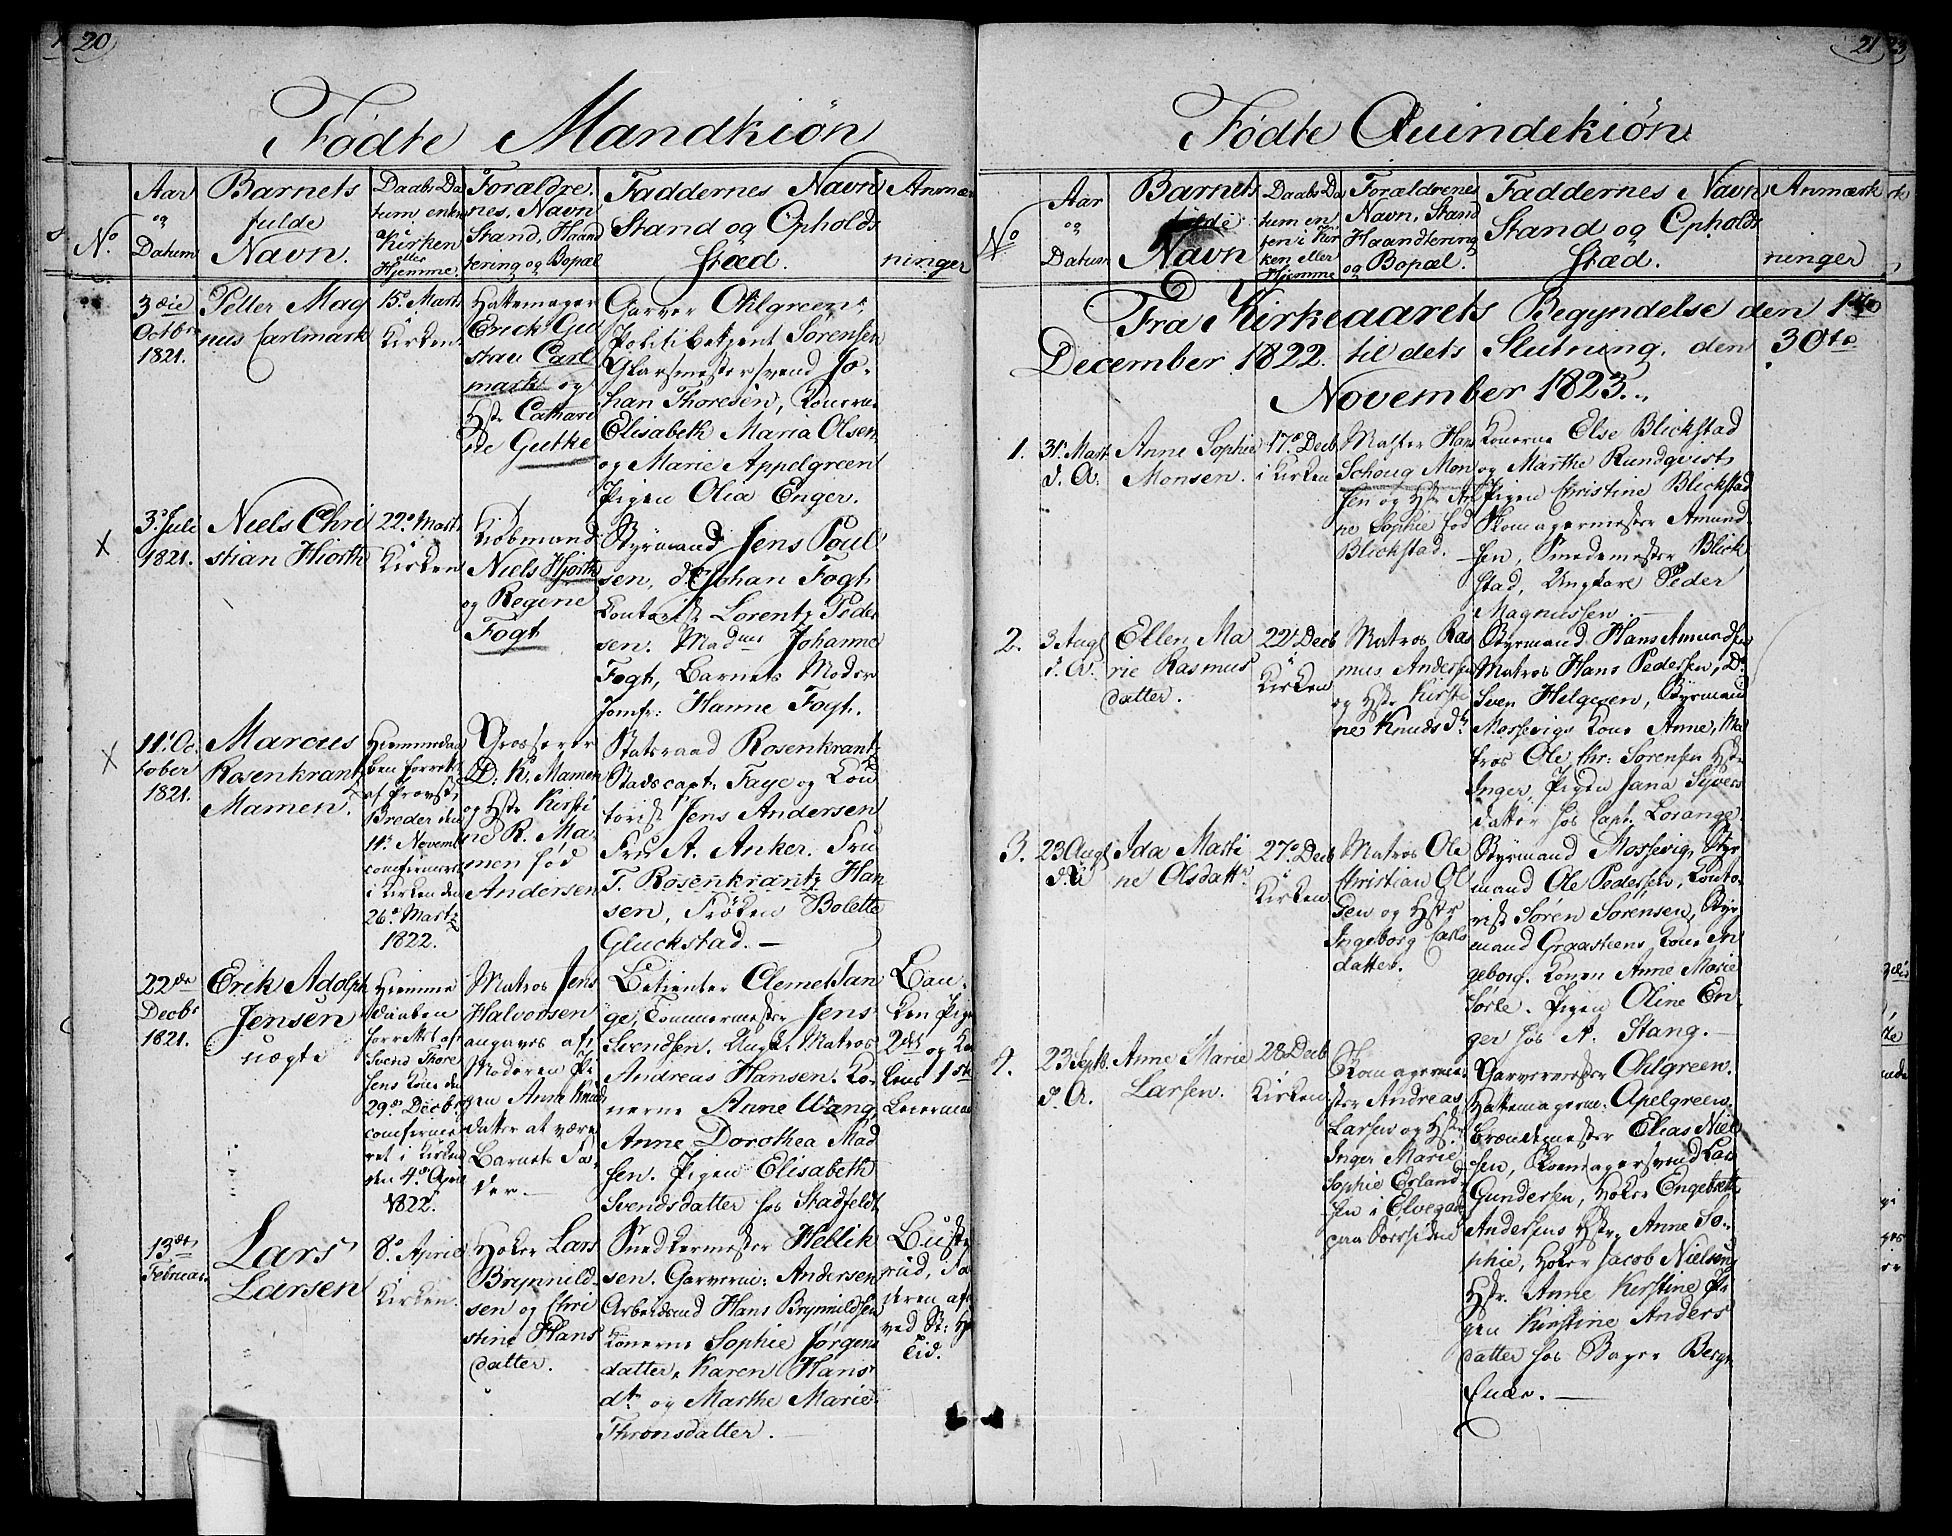 20
Fødte Mandkiøn
No.
Aar
og
Datum
Barnets
fulde
Navn.
Daabs Da
tum, enten
i Kirken
eller
Hjemme.
Forældre
nes, Navn
Stand, Haand
tering og Bopæl
Faddernes Navn
Stand og Opholds
stæd.
Anmær
ninger
3die
Octbr
1821.
Petter Mag
nus Carlmark
15. Marts
i
Kirken
Hattemager
Erick Gu
stav Carl
mark og
Hstr Cathari
ne Gutke
Garver Ohlgreen,
Politibetjent Sørensen
Glarmestersvend Jo-
han Thoresen, Konerne
Elisabeth Maria Olsen
og Marie Appelgreen
Pigen Olia Enger.
3. Juli
1821.
Niels Chri
stian Hiorth
22. Marts
i
Kirken
Kiøbmand
Niels Hjorth
og Regine
Fogt
Styrmand Jens Poul
sen, do Johan Fogt
Contorist Lorentz Peder
sen. Madme Johanne
Fogt, Barnets Moder
Jomfr: Hanne Fogt.
11. Oc
tober
1821.
Marcus
Rosenkrantz
Mamen.
Hiemmedaa
ben forrettet
af Provst
Breder den
11. Novemb
confirmeret
i Kirken den
26. Marts
1822.
Grosserer
D. K. Mamen
og Hstr Kirsti
ne R. Ma
men fød
Andersen
Statsraad Rosenkrantz
Stadscapt: Faye og Con
torist Jens Andersen
Fru A. Anker. Fru
T. Rosenkrantz Han
sen, Frøken Bolette
Gluckstad. —
22de
Decbr
1821.
Erik Adolph
Jensen
uægte
Hiemme
daaben
forrettet af
Svend Thore
sens Kone den
29. Decbr
confirme
ret i Kirken
den 4. April
1822.
Matros Jens
Halvorsen
angaves af
Moderen Pi
gen Anne Knuds
datter at være
Barnets Fa
der. —
Betienter Clemet Tan
ge, Tømmermester Jens
Svendsen. Ungk. Matros
Andreas Hansen. Ko-
nerne Anne Wang,
Anne Dorothea Mad
sen. Pigen Elisabeth
Svendsdatter hos Stadfeldt
2det og
1ste
Leierm
13de
Februar
Lars
Larsen
8. April
i
Kirken.
Høker Lars
Brynnild-
sen og Chri
stine Hans
datter.
Snedkermester Hellik
sen. Garverm: Andersen
Arbeidsmd Hans Brynnildsen
Konerne Sophie Jørgens
datter, Karen Hans
dtr og Marthe Marie
Thronsdatter. —
21
Fødte Quindekiøn
No
Aar
og
Datum
Barnets
fulde
Navn
Daabs Da
tum en
ten i Kir
ken eller
Hjemme
Forældrenes
Navn, Stand
Haandtering
og Bopæl.
Faddernes Navn
Stand og Opholds
stæd.
Anmærk
ninger
Fra Kirkeaarets Begyndelse den 1ste
December 1822. til dets Slutning. den 30te
November 1823.
1.
31. Mart.
d. A.
Anne Sophie
Monsen.
17. Decb
i Kirken
Master Hans
Schoug Mon
sen og Hstr An
ne Sophie fød
Blickstad.
Konerne Else Blickstad
og Marthe Rundqvist,
Pigen Christine Blickstad
Skomagermester Amund-
sen, Smedemester Blick
stad, Ungkarl Peder
Magnussen. —
2.
3 Augs
d. A.
Ellen Ma
rie Rasmus
datter.
22. Decb
i
Kirken
Matros Ras
mus Andersen
og Hstr Kirsti
ne Knudsdtr
Styrmand Hans Amundsen
Matros Hans Pedersen, Do
Sven Helgesen, Styrmand
Mossevigs Kone Anne, Ma
tros Ole Chr: Sørensen Hstr
Inger, Pigen Jana Syvers
datter hos Capt. Lorange.
3.
23 Augs
d. A
Ida Marti
ne Olsdattr
27. Decb
i
Kirken
Matros Ole
Christian Ol
sen og Hstr
Ingeborg Carls
datter.
Styrmand Mossevig, Styr
mand Ole Pedersen, Conto-
rist Søren Sørensen, Styr
mand Graasteens Kone In
geborg. Konen Anne Marie
Sørle. Pigen Oline En-
ger hos A. Stang. —
4.
23 Septb.
d. A.
Anne Marie
Larsen.
28 Decb
i
Kirken
Skomagerme-
ster Andreas
Larsen og Hstr
Inger Marie
Sophie Erland-
sen i Elvegaden
paa Sørsiden
Garvermester Ohlgreen.
Hattemagerm: Apelgreen,
Brændemester Elias Niel
sen, Skomagersvend Lars
Gundersen, Høker Engebrett
Andersens Hstr, Anne So-
phie, Høker Jacob Nielsens
Hstr. Anne Kirstine Pi
gen Kirstine Anders
datter hos Bager Berg
Enke. —